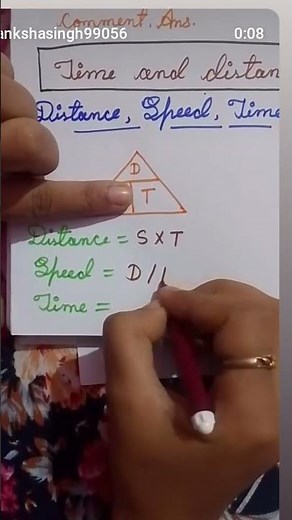 Comment. Ans.
ankshasingh99056 0:08
Time and distan
Distance, Speed, Time
D
T
Distance = S X T
Speed = D /
Time =